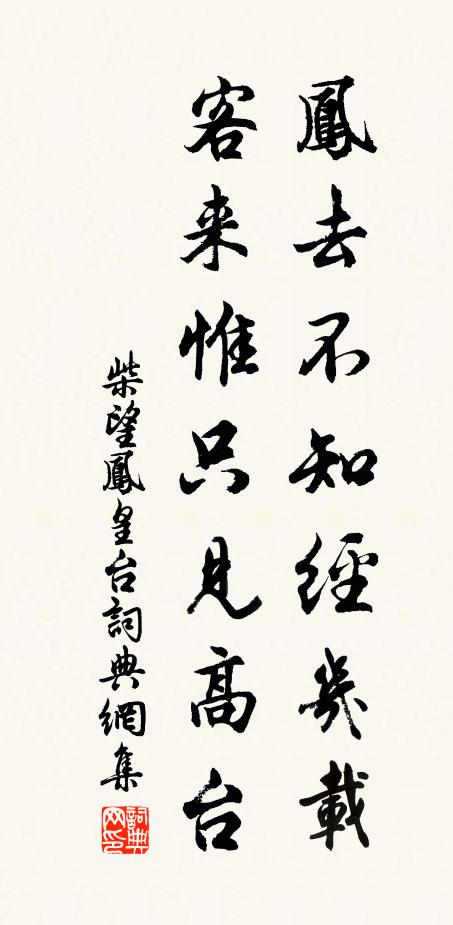 鳳去不知經幾載
客来惟只見高台
柴望鳳皇台詞典網集
詞典
网印